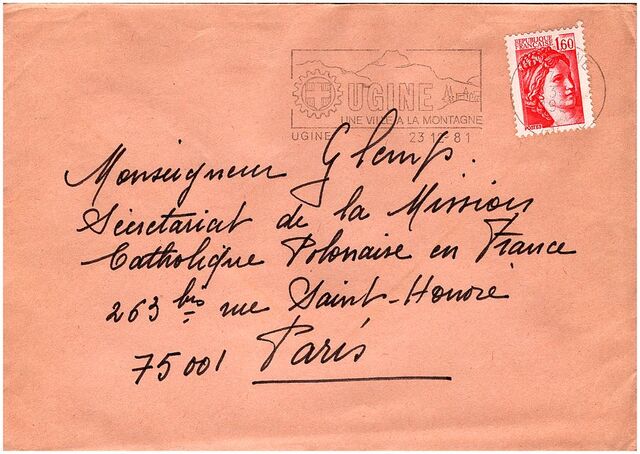 REPUBLIQUE FRANCAISE 1,60
POSTES
UGINE
UNE VILLE A LA MONTAGNE
UGINE 23 12 81
Monseigneur Glemp.
Sécretariat de la Mission
Catholique Polonaise en France
263 bis rue Saint-Honoré
75001 Paris